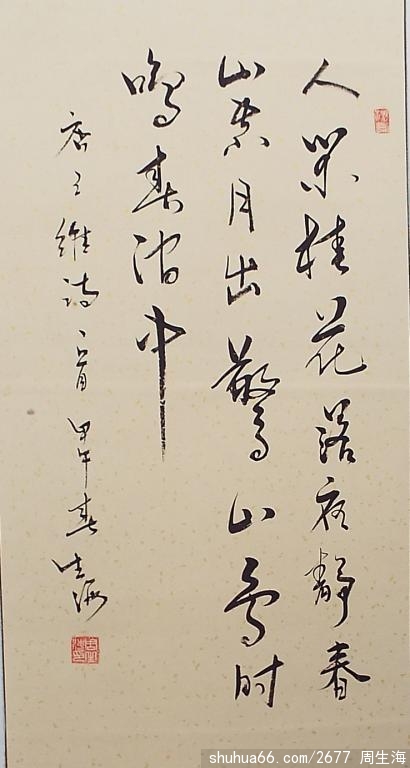 人閒桂花落夜静春
山空月出驚山鳥时
鳴春澗中
唐王維诗一首 甲午春生海
shuhua66.com/2677 周生海